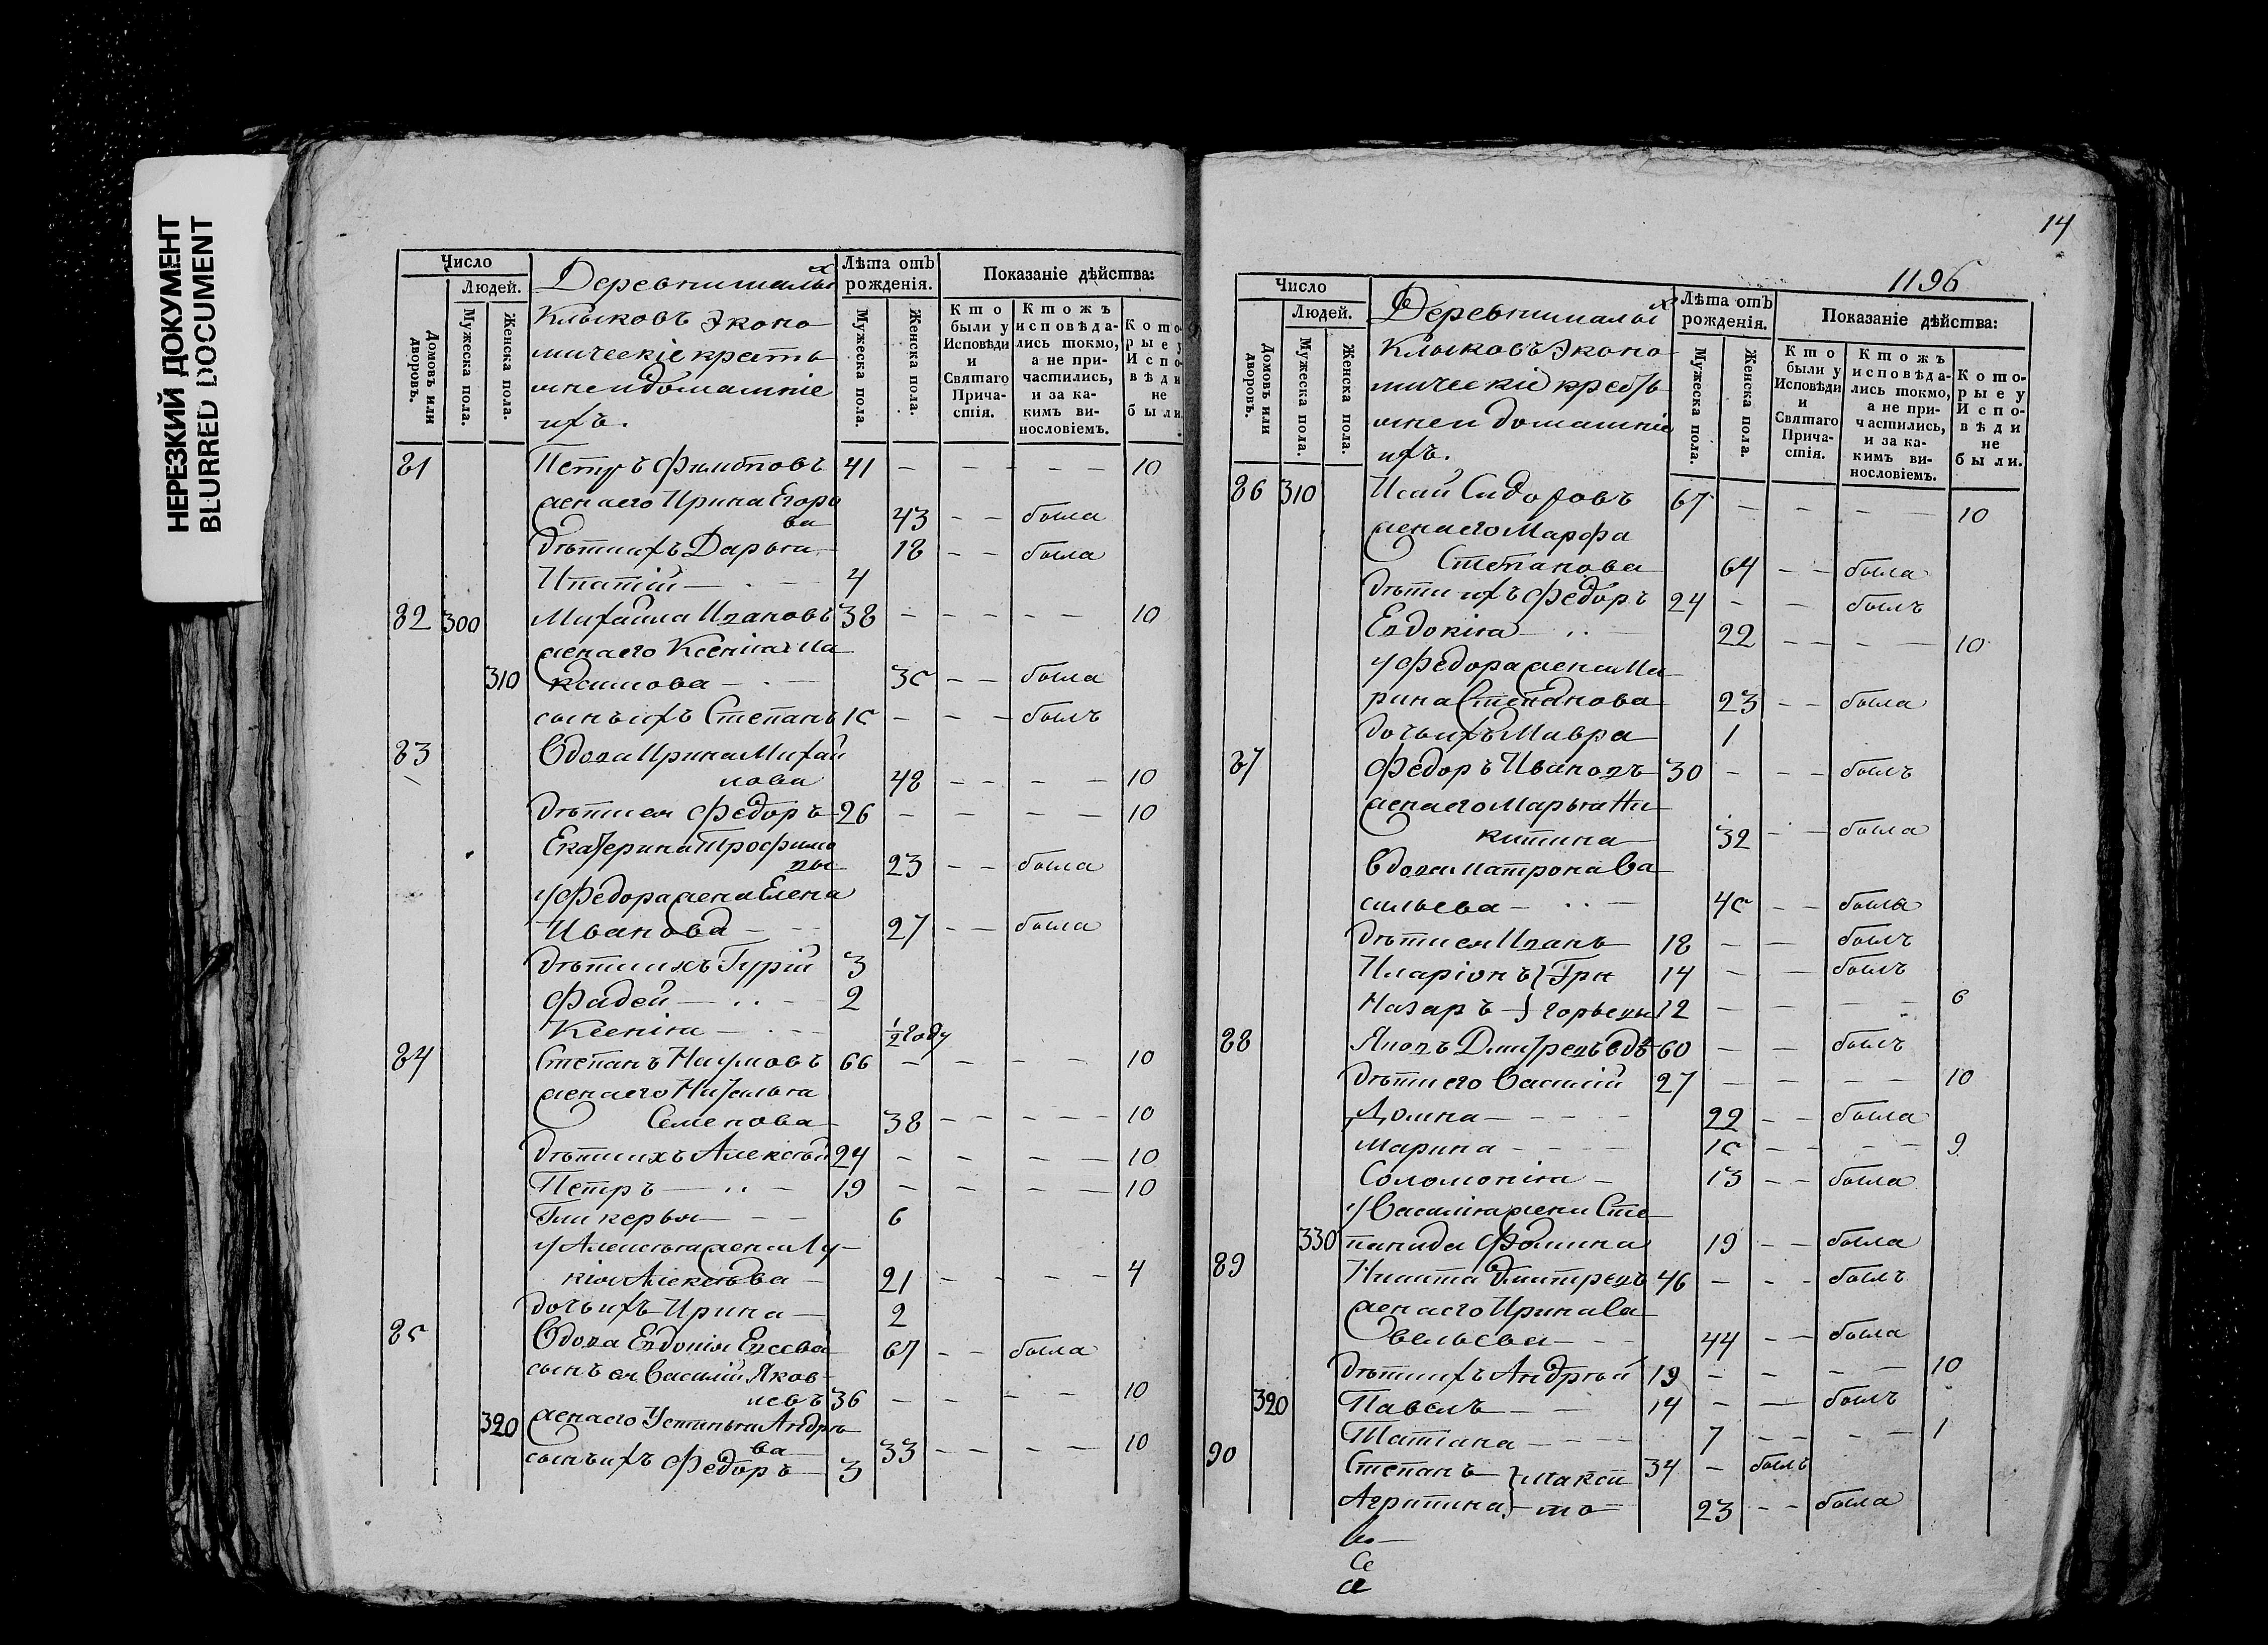 НЕРЕЗКИЙ ДОКУМЕНТ
BLURRED DOCUMENT
Число
Людей.
Домовъ или дворовъ.
Мужеска пола.
Женска пола.
Деревни малых
Клыковъ Эконо
мическiе кресть
яне и домашнiе
ихъ.
Лѣта отъ рожденiя.
Мужеска пола.
Женска пола.
Показанiе дѣйства:
Кто были у Исповѣди и Святаго Прича-стiя.
Ктожъ исповѣда-лись токмо, а не при-частились, и за ка-кимъ ви-нословiемъ.
Кото-рые у Испо-вѣди не были.
81 Петръ Филиповъ 41 — — — — — 10
жена его Ирина Егоро
ва 43 — — была
дѣти ихъ Дарья — 18 — — была
Ипатiй — . — 4
82 300 Михайла Ивановъ 38 — — — — — 10
жена его Ксенiя Ма
310 ксимова — . — 35 — — была
сынъ ихъ Степанъ 15 — — — былъ
83 Вдова Ирина Михай
лова 48 — — — — 10
дѣти ея Федоръ — 26 — — — — 10
Екатерина Трофимо
вы 23 — — была
у Федора жена Елена
Иванова — — 27 — — была
дѣти ихъ Гурiй 3
Фадей — . . — 2
Ксенiя — . — — 1/2 году
84 Степанъ Наумовъ 66 — — — — 10
жена его Наталья
Семенова — 38 — — — — — 10
дѣти ихъ Алексѣй 24 — — — — 10
Петръ — . . — 19 — — — — 10
Гликерья — — — 6
у Алексѣя жена Лу —
кiя Алексѣева — 21 — — — — 4
дочь ихъ Ирина — 2
85 Вдова Евдокiя 67 — — была
сынъ ея Василiй Яков —
левъ 36 — — — — 10
320 жена его Устинья Андрѣ
ва — 33 — — — — 10
сынъ ихъ Федоръ — 3
14
1196
Число
Людей.
Домовъ или дворовъ.
Мужеска пола.
Женска пола.
Деревни малых
Клыковъ Эконо
мическiе кресть
яне и домашнiе
ихъ.
Лѣта отъ рожденiя.
Мужеска пола.
Женска пола.
Показанiе дѣйства:
Кто были у Исповѣди и Святаго Прича-стiя.
Ктожъ исповѣда-лись токмо, а не при-частились, и за ка-кимъ ви-нословiемъ.
Кото-рые у Испо-вѣди не были.
86 310 Исай Сидоровъ 67 — — — — 10
жена его Марфа
Степанова 64 — — была
дѣти ихъ Федоръ 24 — — былъ
Евдокiя — . . — 22 — — — — 10
у Федора жена Ма —
рина Степанова 23 — — была
дочь ихъ Мавра — 1
87 Федоръ Ивановъ 30 — — — былъ
жена его Марья Ни —
китина — 32 — — была
вдова Матрона Ва —
сильева — . . — 45 — — была
дѣти ея Иванъ — 18 — — былъ
Иларiонъ } Гри 14 — — былъ
Назаръ — } горьевы 12 — — — — 6
88 Яковъ Дмитревъ вдв 60 — — былъ
дѣти его Василiй 27 — — — — 10
Домна — — — — 22 — — была
Марина — — — — 15 — — — — 9
Соломонiя — 13 — — была
у Василiя жена Сте —
330 панида Фомина 19 — — была
89 Никита Дмитревъ 46 — — — былъ
жена его Ирина Са
вельева — — — 44 — — была
дѣти ихъ Андрѣй 19 — — — — 10
320 Павелъ — — 14 — — былъ
Татiана — — — — 7 — — — — 1
90 Степанъ — } Макси 34 — былъ
Агрипина } — мо — 23 — — была